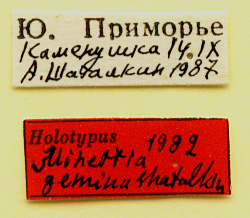 Ю. Приморье
Каменушка 14.IX
А.Шаталкин 1987
Holotypus 1992
Minettia
gemina Shatalkin